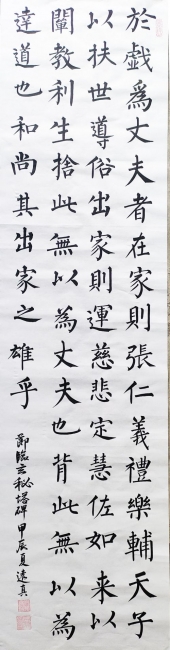 於戲為丈夫者在家則張仁義禮樂輔天子
以扶世導俗出家則運慈悲定慧佐如来以
闡教利生捨此無以為丈夫也背此無以為
達道也和尚其出家之雄乎
節臨玄秘塔碑甲辰夏遠真